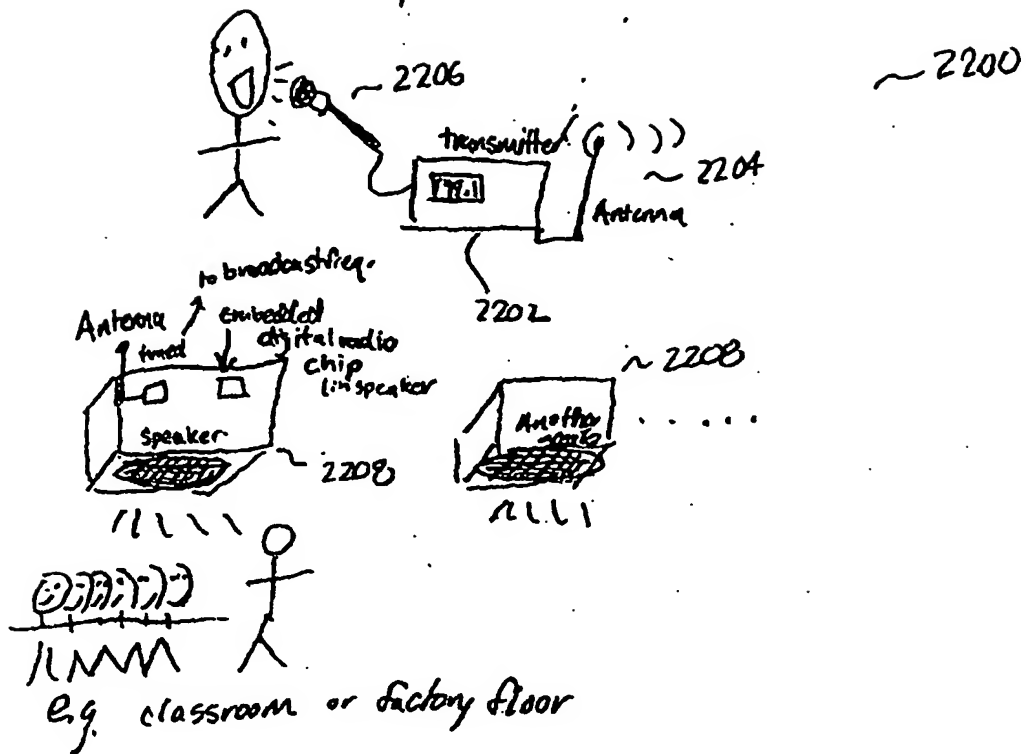 2206
2200
transmitter
99.1
2204
Antenna
2202
to broadcast freq.
Antenna
tuned
embedded
digital radio
chip
(in speaker
speaker
2208
2208
Another
e.g. classroom or factory floor